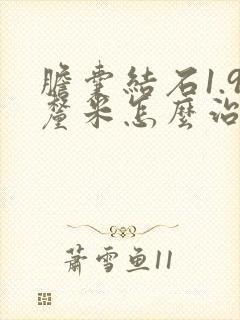 膽囊結石1.9
釐米怎麼治
蕭雪魚11